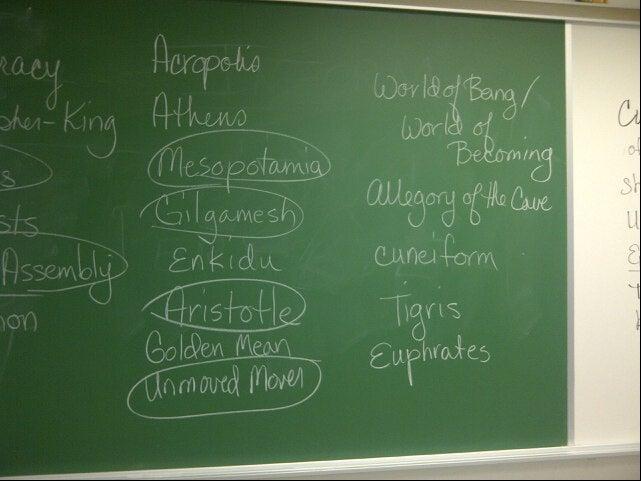 racy
pher-King
s
sts
Assembly
non
Acropolis
Athens
Mesopotamia
Gilgamesh
Enkidu
Aristotle
Golden Mean
Unmoved Mover
World of Being/
World of
Becoming
Allegory of the Cave
cuneiform
Tigris
Euphrates